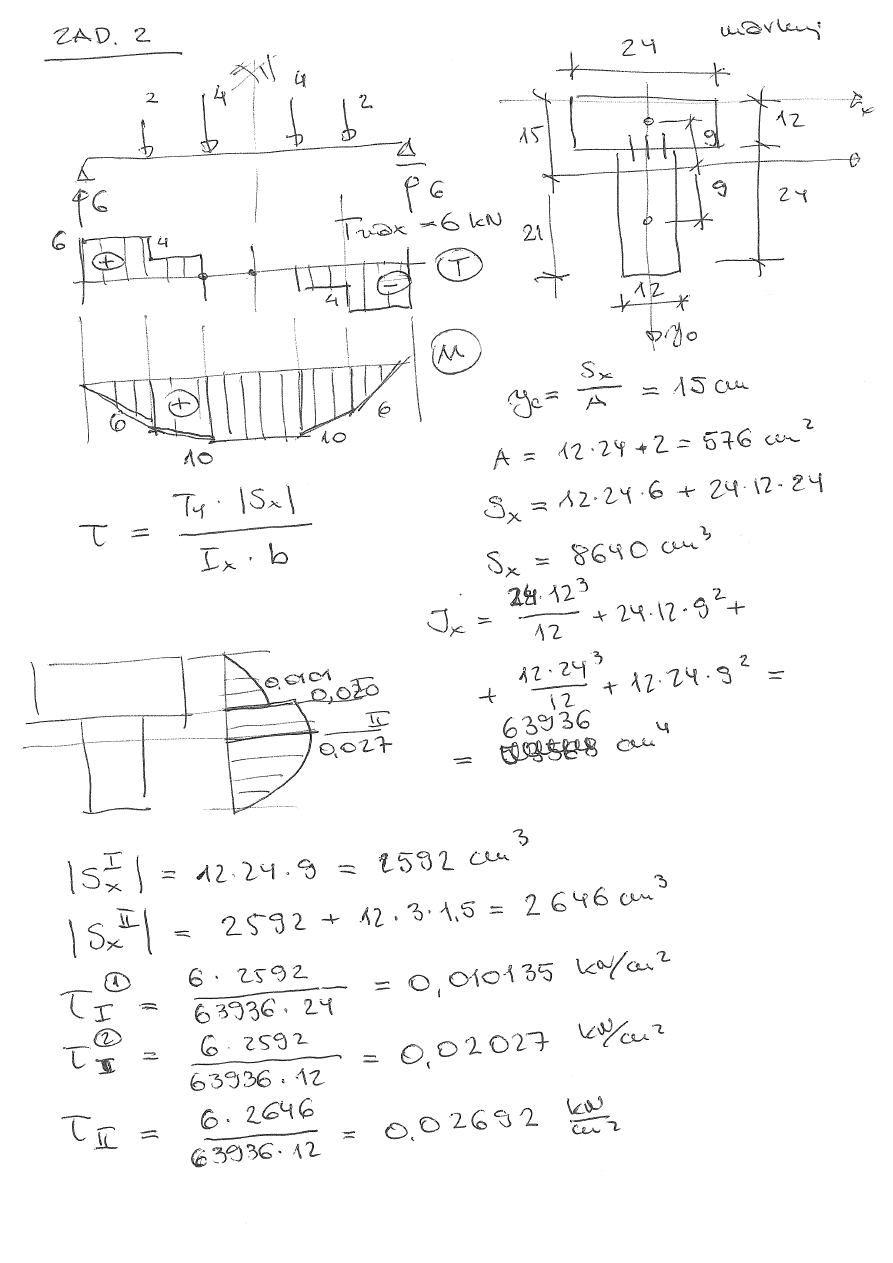 ZAD. 2
24
2
4
4
2
15
12
9
x
6
6
9
24
21
Tmax = 6 kN
6
4
+
T
4
−
12
y₀
M
6
+
6
10
10
y_c = S_x / A = 15 cm
A = 12·24·2 = 576 cm²
S_x = 12·24·6 + 24·12·24
S_x = 8640 cm³
τ = T_y · |S_x| / I_x · b
J_x = 24·12³ / 12 + 24·12·9² +
+ 12·24³ / 12 + 12·24·9² =
= 63936 cm⁴
0,0101
0,020 I
II
0,027
|S_x^I| = 12.24.9 = 2592 cm³
|S_x^II| = 2592 + 12.3.1,5 = 2646 cm³
τ_I^① = 6·2592 / 63936·24 = 0,010135 kN/cm²
τ_I^② = 6·2592 / 63936·12 = 0,02027 kN/cm²
τ_II = 6·2646 / 63936·12 = 0,02692 kN/cm²